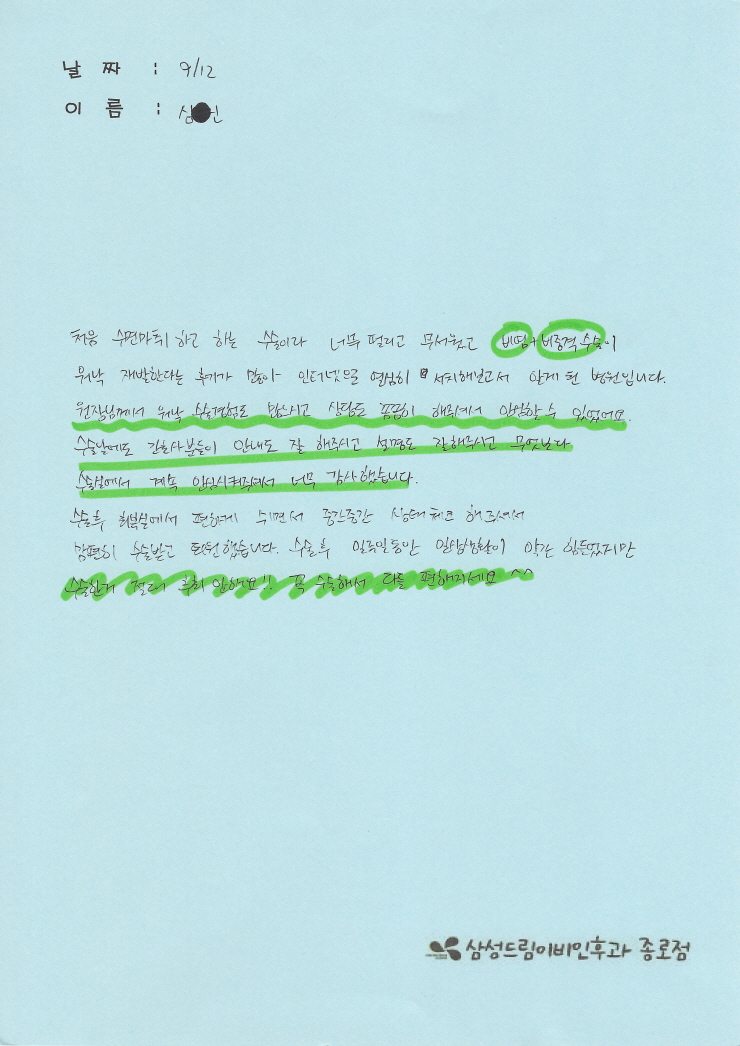 날 짜 : 9/12
이 름 : 심●인
처음 수면마취 하고 하는 수술이라 너무 떨리고 무서웠고 비염+비중격수술이
워낙 재발한다는 후기가 많아 인터넷으로 열심히 서치해보고서 알게 된 병원입니다.
원장님께서 워낙 수술경험도 많으시고 상담도 꼼꼼히 해주셔서 안심할 수 있었어요.
수술날에도 간호사분들이 안내도 잘 해주시고 설명도 잘해주시고 무엇보다
수술실에서 계속 안심시켜주셔서 너무 감사했습니다.
수술후 회복실에서 편하게 쉬면서 중간중간 상태체크 해주셔서
간편히 수술받고 퇴원했습니다. 수술후 일주일동안 일상생활이 약간 힘들었지만
수술한거 절대 후회 안해요!! 꼭 수술해서 다들 편해지세요 ^^
삼성드림이비인후과 종로점